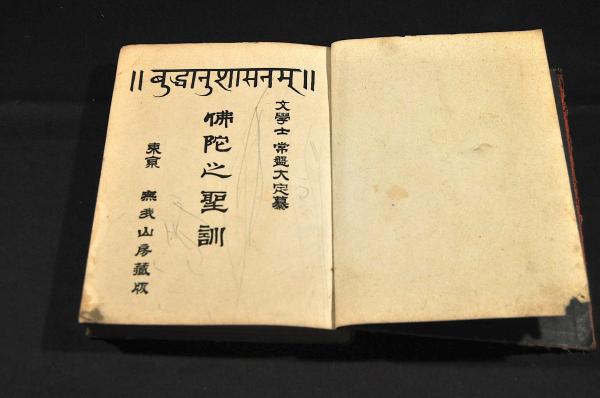 ॥ बुद्धानुशासनम् ॥
文學士 常盤大定纂
佛陀之聖訓
東京 無我山房藏版